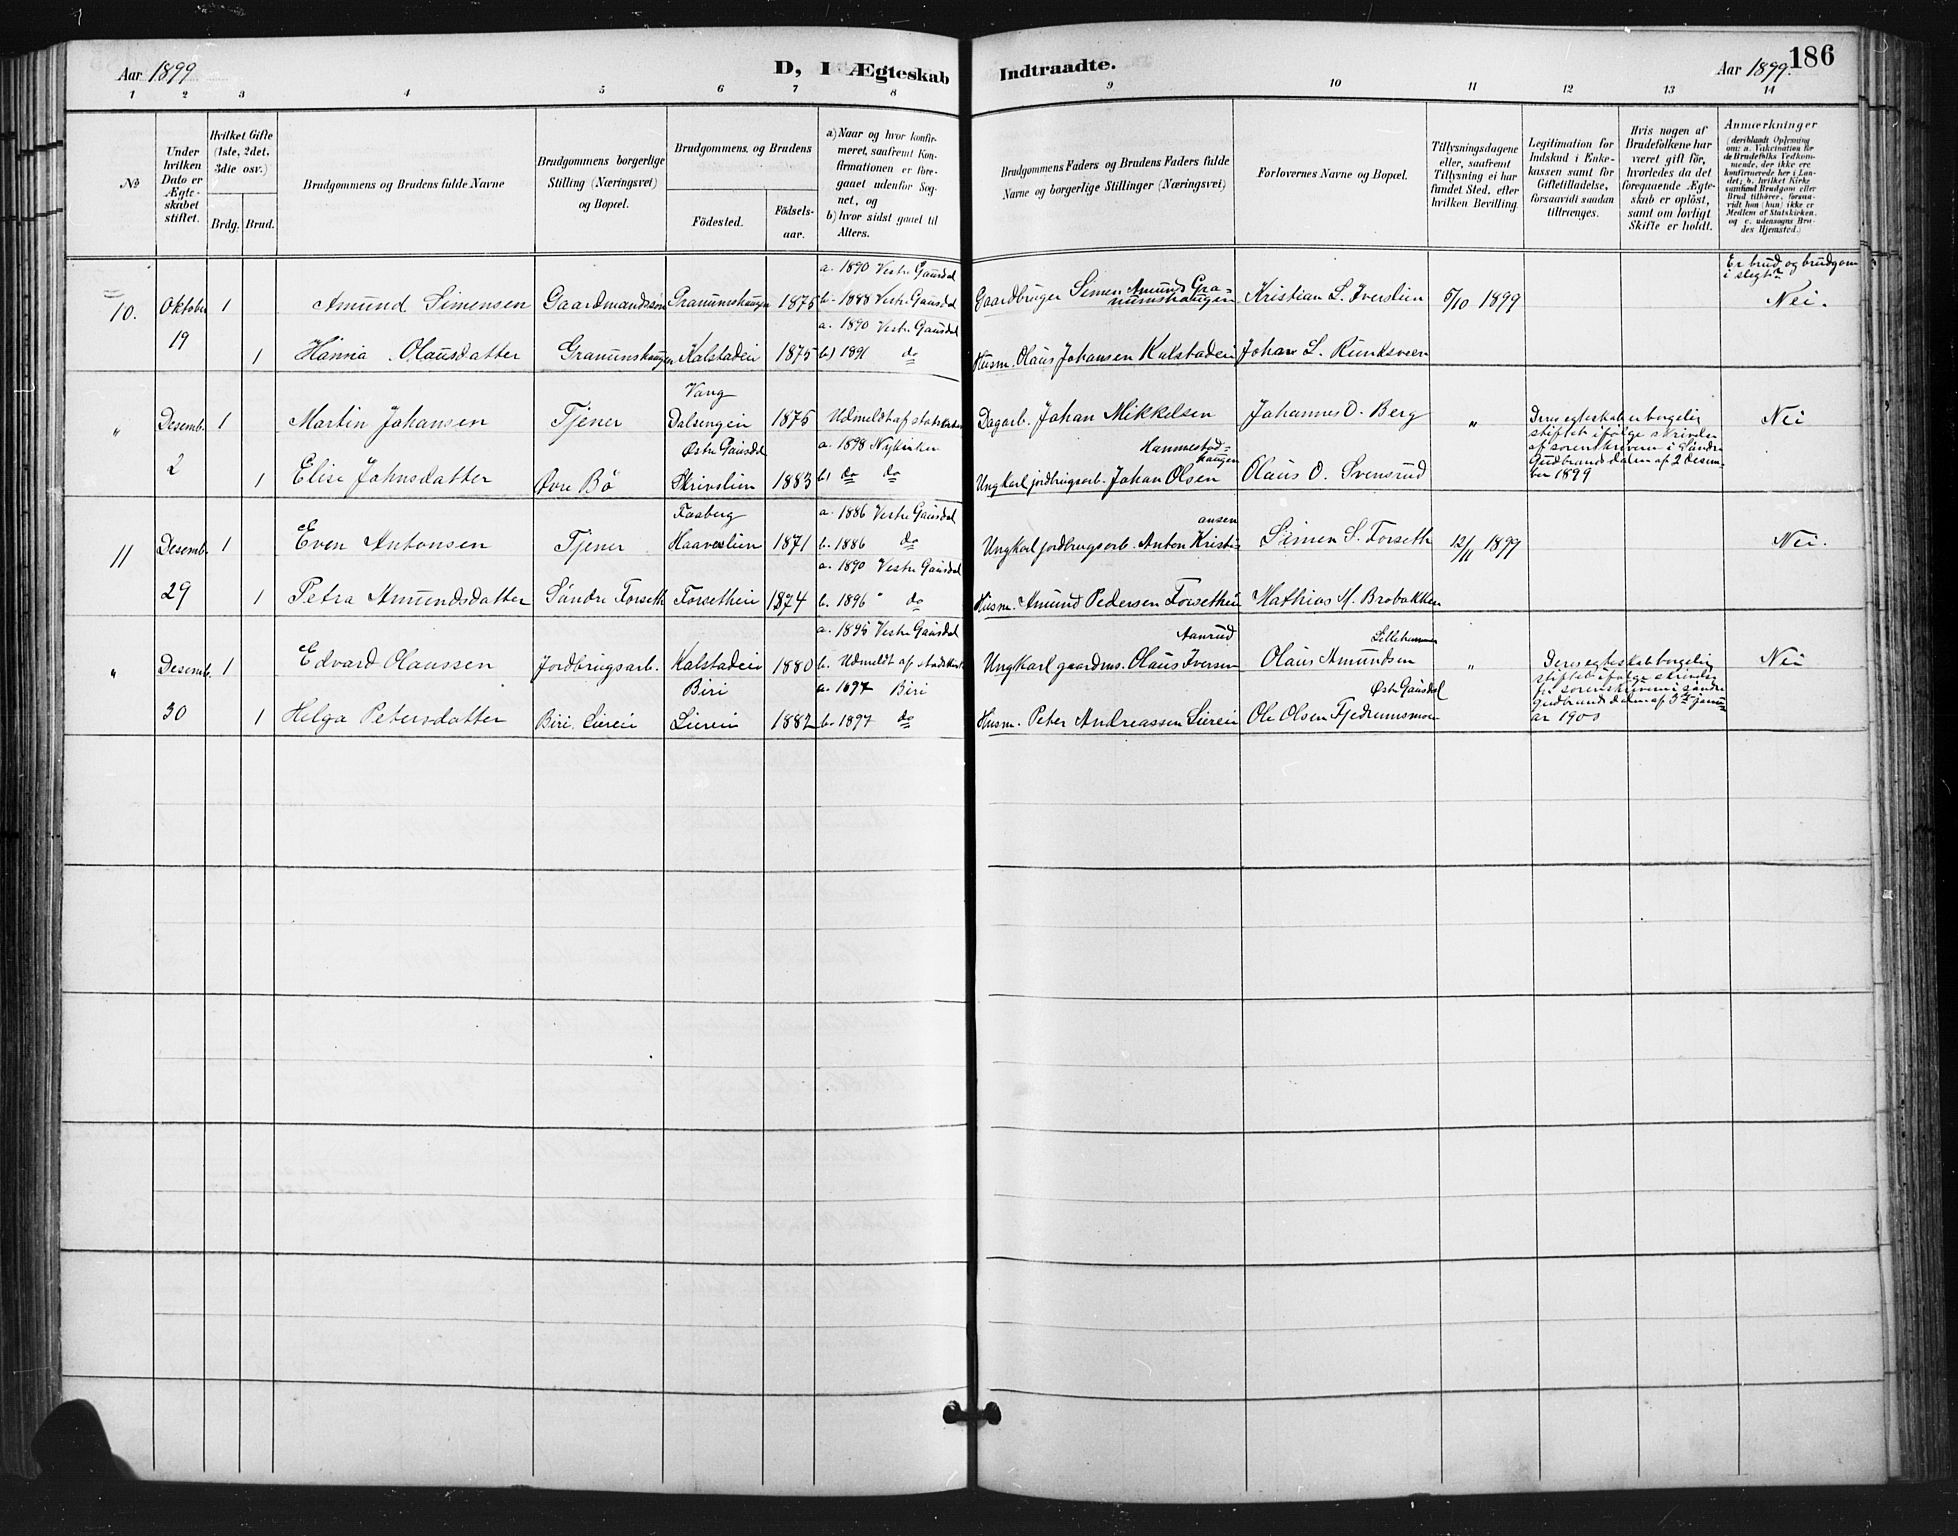 186
Aar 1899
D, I Ægteskab
Indtraadte.
Aar 1899.
1 2 3 4 5 6 7 8 9 10 11 12 13 14
No
Under hvilken Dato er Ægteskabet stiftet.
Hvilket Gifte (1ste, 2det, 3die osv.)
Brdg. Brud.
Brudgommens og Brudens fulde Navne
Brudgommens borgerlige Stilling (Næringsvei) og Bopæl.
Brudgommens og Brudens
Födested.
Födselsaar.
a) Naar og hvor konfirmeret, saafremt Konfirmationen er foregaaet udenfor Sognet, og
b) hvor sidst gaaet til Alters.
Brudgommens Faders og Brudens Faders fulde Navne og borgerlige Stillinger (Næringsvei)
Forlovernes Navne og Bopæl.
Tillysningsdagene eller, saafremt Tillysning ei har fundet Sted, efter hvilken Bevilling.
Legitimation for Indskud i Enkekassen samt for Giftetilladelse, forsaavidt saadan tiltrænges.
Hvis nogen af Brudefolkene har været gift för, hvorledes da det foregaaende Ægteskab er oplöst, samt om lovligt Skifte er holdt.
Anmærkninger
(deriblandt Oplysning om: a. Vakcination for de Brudefolks Vedkommende, der ikke ere konfirmerede her i Landet; b. hvilket Kirkesamfund Brudgom eller Brud tilhører, forsaavidt han (hun) ikke er Medlem af Statskirken, og c. udensogns Brudes Hjemsted.)
Er brud og brudgom i slegt?
10. Oktober 1 Amund Simensen Gaardmandssön Granumshaugen 1875 a. 1890 Vestre Gausdal b. 1888 Vestre Gausdal Gaardbruger Simen Amund Granumshaugen Kristian L. Iverslien 5/10 1899 Nei.
19 1 Hanna Olausdatter Granumshaugen Kalstadeie 1875 a. 1890 Vestre Gausdal b) 1891 do Husm. Olaus Johansen Kalstadeie Johan L.
" Desemb. 1 Martin Johansen Tjener Vang Dalsengen 1875 Udmeldt af statskirken Dagarb. Johan Mikkelsen Johannes O. Berg " Deres egteskab er borgelig stiftet ifölge skrivelse af sorenskriveren i Söndre Gudbrandsdalen af 2 Desember 1899 Nei
2 1 Elise Johnsdatter Øvre Bö Østre Gausdal Skrivslien 1883 a. 1898 Nykirken b) do do Ungkarl jordbrugsarb. Johan Olsen Hammestadhaugen Olaus O. Svensrud
11 Desemb. 1 Even Antonsen Tjener Faaberg Haaveslien 1871 a. 1886 Vestre Gausdal b. 1886 do Ungkarl jordbrugsarb. Anton Kristiansen Simen S. Forseth 12/11 1899 Nei.
29 1 Petra Amundsdatter Söndre Forseth Forsetheie 1874 a. 1890 Vestre Gausdal b. 1896 " do Husm. Amund Pedersen Forsetheie Mathias M. Brobakken
" Desemb. 1 Edvard Olaussen Jordbrugsarb. Kalstadeie 1880 a. 1895 Vestre Gausdal b. Udmeldt af statskirken Ungkarl gaardms. Olaus Iversen Aanrud Olaus Amundsen Lillehammer " Deres egteskab borgelig stiftet ifölge skrivelse fra sorenskriveren i söndre Gudbrandsdalen af 3die januar 1900 Nei
30 1 Helga Petersdatter Biri Liereie Biri Liereie 1882 a. 1897 Biri b. 1897 do Husm. Peter Andreassen Liereie Ole Olsen Fjedrumsmoen Østre Gausdal